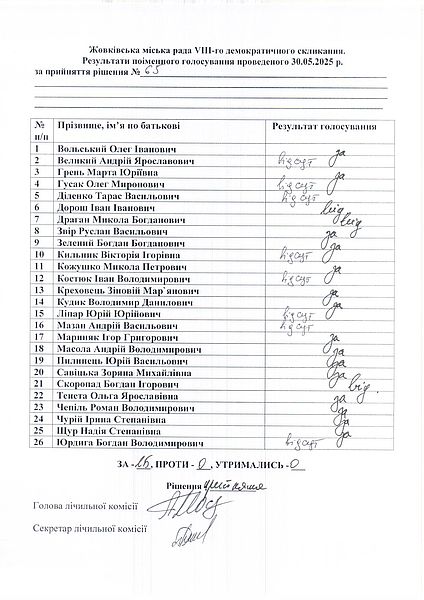 Жовківська міська рада VIII-го демократичного скликання.
Результати поіменного голосування проведеного 30.05.2025 р.
за прийняття рішення № 65
№ п/п Прізвище, ім’я по батькові Результат голосування
1 Вольський Олег Іванович за
2 Великий Андрій Ярославович відсут
3 Грень Марта Юріївна за
4 Гусак Олег Миронович відсут
5 Діденко Тарас Васильович відсут
6 Дорош Іван Іванович від
7 Драган Микола Богданович від
8 Звір Руслан Васильович за
9 Зелений Богдан Богданович за
10 Кильник Вікторія Ігорівна відсут
11 Кожушко Микола Петрович за
12 Костюк Іван Володимирович відсут
13 Креховець Зіновій Мар`янович за
14 Кудик Володимир Данилович за
15 Ліпар Юрій Юрійович відсут
16 Мазан Андрій Васильович відсут
17 Мариняк Ігор Григорович за
18 Масола Андрій Володимирович за
19 Пилипець Юрій Васильович за
20 Савіцька Зоряна Михайлівна за
21 Скоропад Богдан Ігорович від.
22 Тенета Ольга Ярославівна за
23 Чепіль Роман Володимирович за
24 Чурій Ірина Степанівна за
25 Щур Надія Степанівна за
26 Юрдига Богдан Володимирович відсут
ЗА - 15, ПРОТИ - 0, УТРИМАЛИСЬ - 0
Рішення прийняте
Голова лічильної комісії
Секретар лічильної комісії